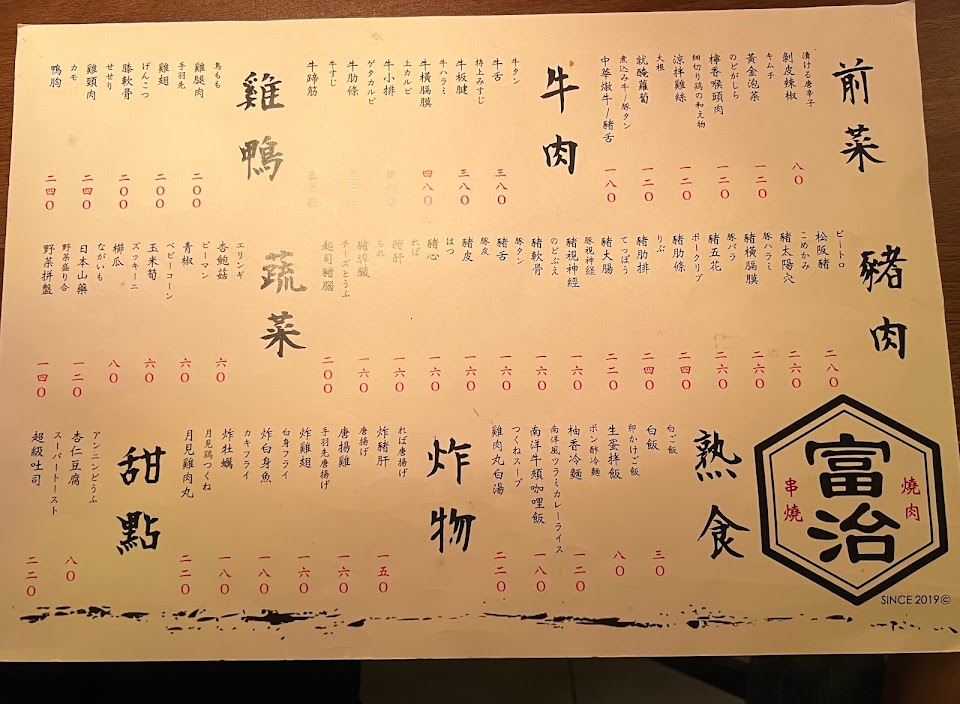 前菜
漬ける唐辛子
剝皮辣椒
八〇
キムチ
黃金泡菜
一二〇
のどがしら
檸香喉頭肉
一二〇
細切り鶏の和え物
涼拌雞絲
一二〇
大根
就醃蘿蔔
一二〇
煮込み牛/豚タン
中華燉牛/豬舌
一八〇
牛肉
牛タン
牛舌
三八〇
特上みすじ
牛板腱
三八〇
牛ハラミ
牛橫膈膜
四八〇
上カルビ
牛小排
ゲタカルビ
牛肋條
牛すじ
牛蹄筋
雞鴨
鳥もも
雞腿肉
二〇〇
手羽先
雞翅
二〇〇
げんこつ
膝軟骨
二〇〇
せせり
雞頸肉
二四〇
カモ
鴨胸
二四〇
豬肉
ピートロ
松阪豬
二八〇
こめかみ
豬太陽穴
二六〇
豚ハラミ
豬橫膈膜
二六〇
豚バラ
豬五花
二六〇
ポークリブ
豬肋條
二四〇
りぶ
豬肋排
二四〇
てっぽう
豬大腸
二二〇
豚視神経
豬視神經
一六〇
のどぶえ
豬軟骨
一六〇
豚タン
豬舌
一六〇
豚皮
豬皮
一六〇
はつ
豬心
一六〇
れば
豬肝
一六〇
ちれ
豬脾臟
一六〇
チーズとうふ
起司豬腦
二〇〇
蔬菜
エリンギ
杏鮑菇
六〇
ピーマン
青椒
六〇
ベビーコーン
玉米筍
六〇
ズッキーニ
櫛瓜
八〇
ながいも
日本山藥
一二〇
野菜盛り合
野菜拼盤
一四〇
富治
燒肉
串燒
SINCE 2019©
熟食
白ご飯
白飯
三〇
卵かけご飯
生蛋拌飯
八〇
ポン酢冷麺
柚香冷麵
一二〇
南洋風ツラミカレーライス
南洋牛頰咖哩飯
一八〇
つくねスープ
雞肉丸白湯
二二〇
炸物
れば唐揚げ
炸豬肝
一五〇
唐揚げ
唐揚雞
一六〇
手羽先唐揚げ
炸雞翅
一六〇
白身フライ
炸白身魚
一八〇
カキフライ
炸牡蠣
一八〇
月見鶏つくね
月見雞肉丸
二二〇
甜點
アンニンどうふ
杏仁豆腐
八〇
スーパートースト
超級吐司
二二〇